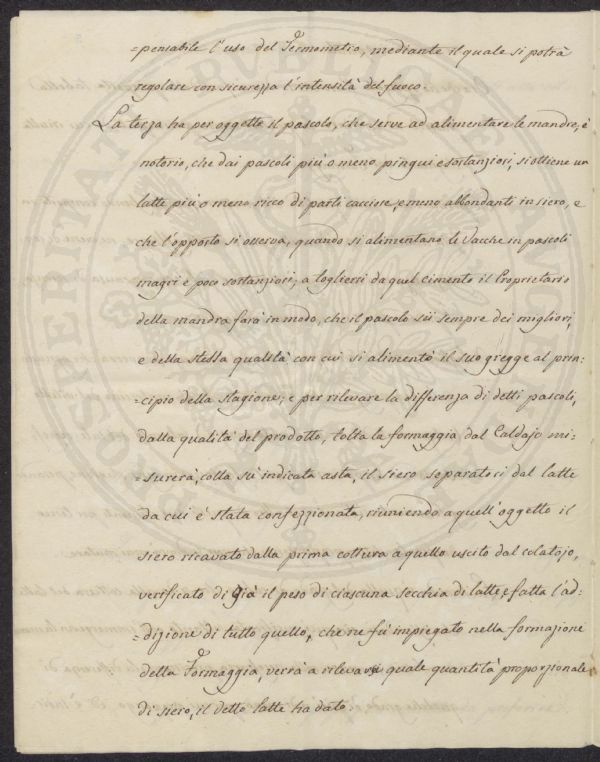 =pensabile l'uso del Termometro, mediante il quale si potrà
regolare con sicurezza l'intensità del fuoco.
La terza ha per oggetto il pascolo, che serve ad alimentare le mandre, è
notorio, che dai pascoli più o meno pingui e sostanziosi, si ottiene un
latte più o meno ricco di parti cacciose, e meno abbondanti in siero, e
che l'opposto si osserva, quando si alimentano le Vacche in pascoli
magri e poco sostanziosi; a togliersi da quel cimento il Proprietario
della mandra farà in modo, che il pascolo sii sempre dei migliori,
e della stessa qualità con cui si alimentò il suo gregge al prin:
=cipio della stagione; e per rilevare la differenza di detti pascoli,
dalla qualità del prodotto, tolta la formaggia dal Caldajo mi=
=surerà, colla sù indicata asta, il siero separatosi dal latte
da cui è stata confezzionata, riuniendo a quell'oggetto il
siero ricavato dalla prima cottura a quello uscito dal colatojo,
verificato di già il peso di ciascuna secchia di latte, e fatta l'ad=
=dizione di tutto quello, che ne fù impiegato nella formazione
della Formaggia, verrà a rilevarsi quale quantità proporzionale
di siero, il detto latte ha dato.
PROSPERITATI PUBLICAE